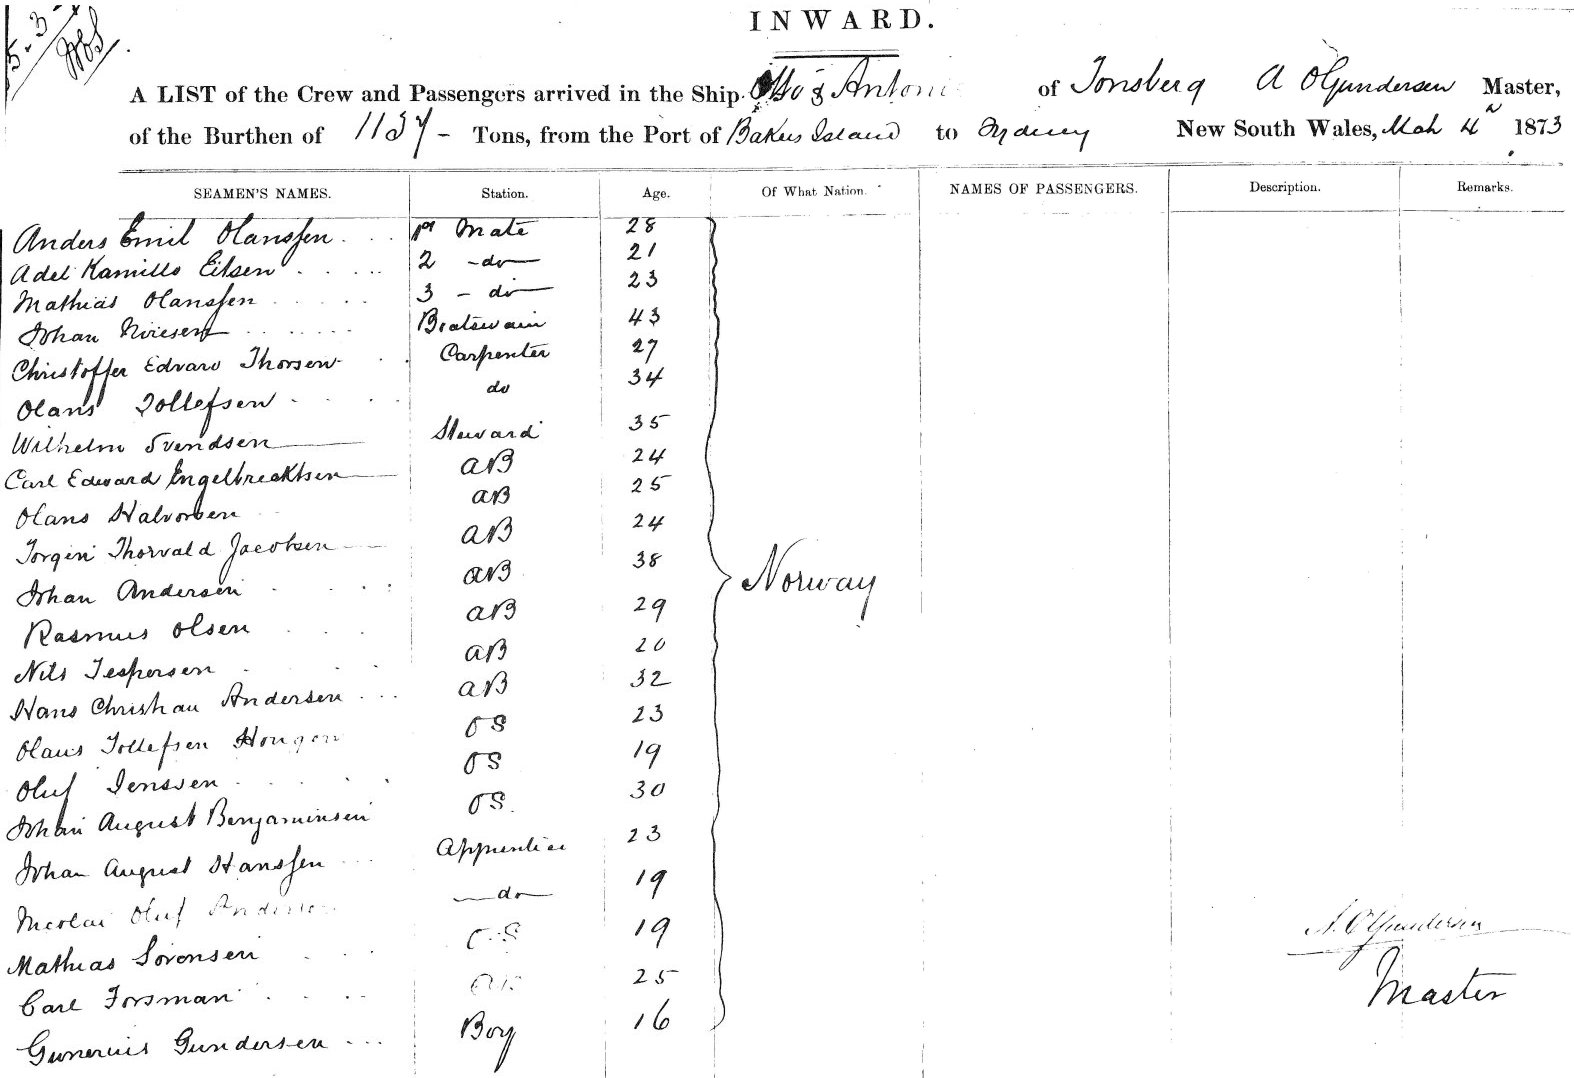 INWARD.
A LIST of the Crew and Passengers arrived in the Ship Otto & Antonie of Tonsberg A O Gundersen Master,
of the Burthen of 1137 - Tons, from the Port of Bakers Island to Sydney New South Wales, Mch 4th 1873
SEAMEN'S NAMES. Station. Age. Of What Nation. NAMES OF PASSENGERS. Description. Remarks.
Anders Emil Olanssen 1st Mate 28
Adel Kamillo Eilsen 2 do 21
Mathias Olanssen 3 do 23
Johan Boatswain 43
Christoffer Edvard Thorsen Carpenter 27
Olans Tollefsen do 34
Wilhelm Svendsen Steward 35
Carl Edward Engelbrecktsen AB 24
Olans Halvorsen AB 25
Jorgen Thorvald Jacobsen AB 24
Johan Andersen AB 38
Rasmus Olsen AB 29
Nils Jespersen AB 20
Hans Christian Andersen AB 32
Olaus Tollefsen Hougen OS 23
Oluf Jenssen OS 19
Johan August Benjaminsen OS. 30
Johan August Hanssen Apprentice 23
Nicolai Oluf Andersen do 19
Mathias Sorensen OS 19
Carl Forsman 25
Gunerius Gundersen Boy 16
Norway
A. O Gundersen
Master